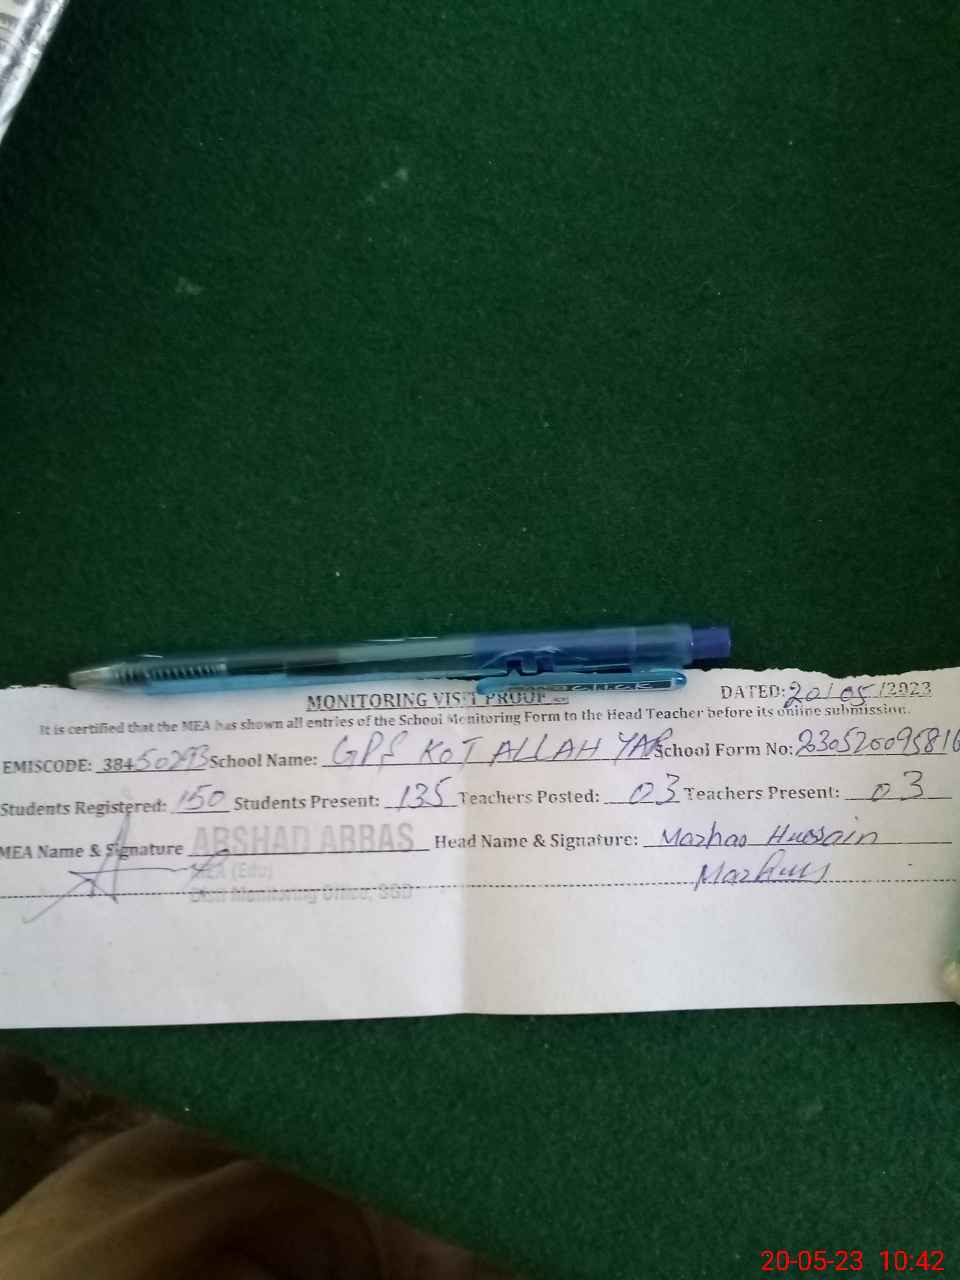 MONITORING VISIT PROOF
DATED: 20/05/2023
It is certified that the MEA has shown all entries of the School Monitoring Form to the Head Teacher before its online submission.
EMISCODE: 38450293 School Name: GPS KOT ALLAH YAR School Form No: 230520095816
Students Registered: 150 Students Present: 135 Teachers Posted: 03 Teachers Present: 03
MEA Name & Signature ARSHAD ABBAS Head Name & Signature: Mazhar Hussain
MEA (Edu) Mazhar
Distt Monitoring Office, SGD
20-05-23 10:42